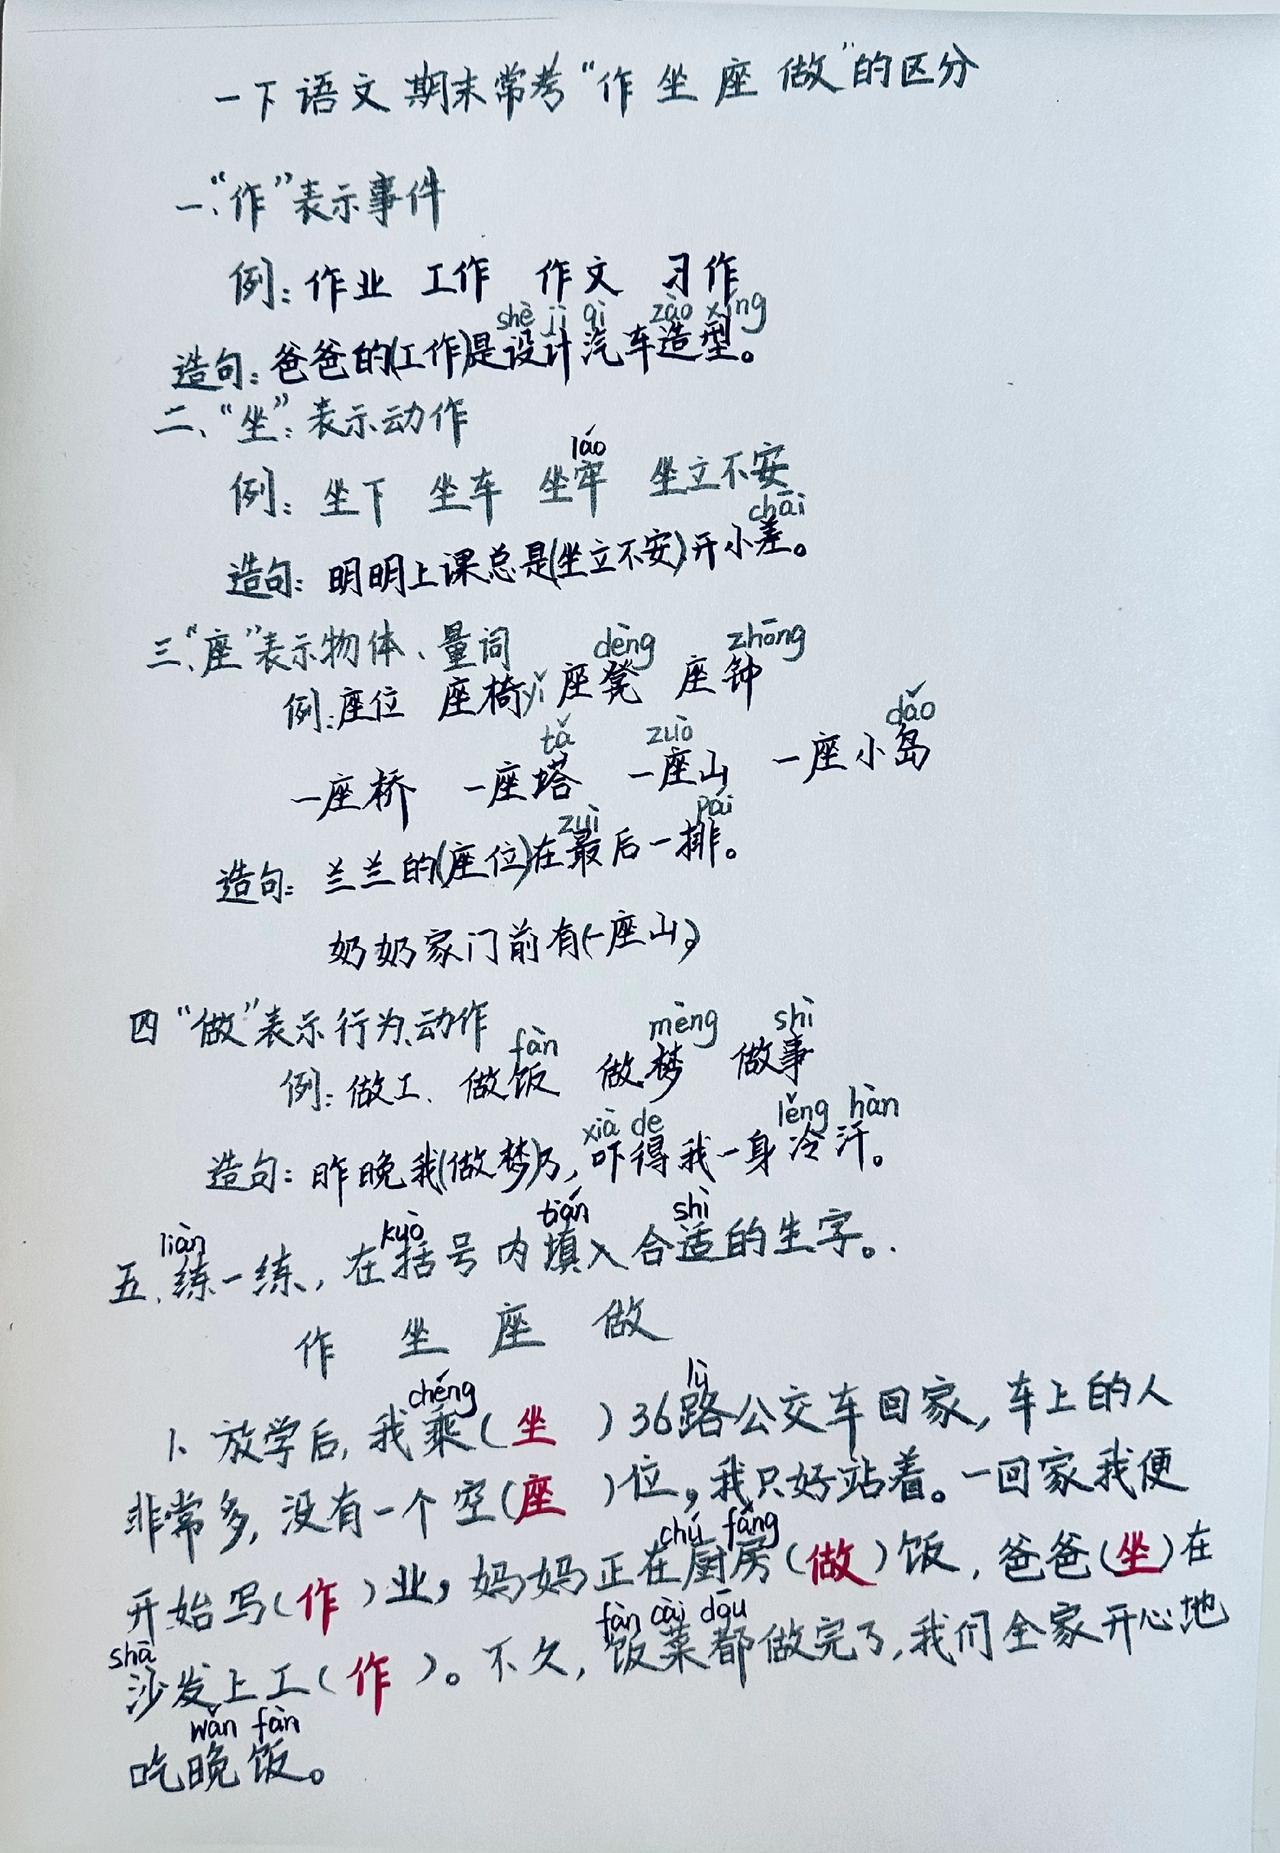 一下语文期末常考“作 坐 座 做”的区分
一、“作”表示事件
例：作业 工作 作文 习作
shè jì qì zào xíng
造句：爸爸的(工作)是设计汽车造型。
二、“坐”：表示动作
láo
例：坐下 坐车 坐牢 坐立不安
chāi
造句：明明上课总是(坐立不安)开小差。
三、“座”表示物体、量词
yǐ dèng zhōng
例：座位 座椅 座凳 座钟
tǎ zuò dǎo
一座桥 一座塔 一座山 一座小岛
zuì pái
造句：兰兰的(座位)在最后一排。
奶奶家门前有(一座山)。
四“做”表示行为、动作
fàn mèng shì
例：做工、做饭 做梦 做事
xià de lěng hàn
造句：昨晚我(做梦)了，吓得我一身冷汗。
liàn kuò tián shì
五、练一练，在括号内填入合适的生字。.
作 坐 座 做
chéng lù
1、放学后，我乘(坐 )36路公交车回家，车上的人
非常多，没有一个空(座 )位，我只好站着。一回家我便
chú fáng
开始写(作 )业，妈妈正在厨房(做)饭，爸爸(坐)在
shā fàn cài dōu
沙发上工(作 )。不久，饭菜都做完了，我们全家开心地
wǎn fàn
吃晚饭。